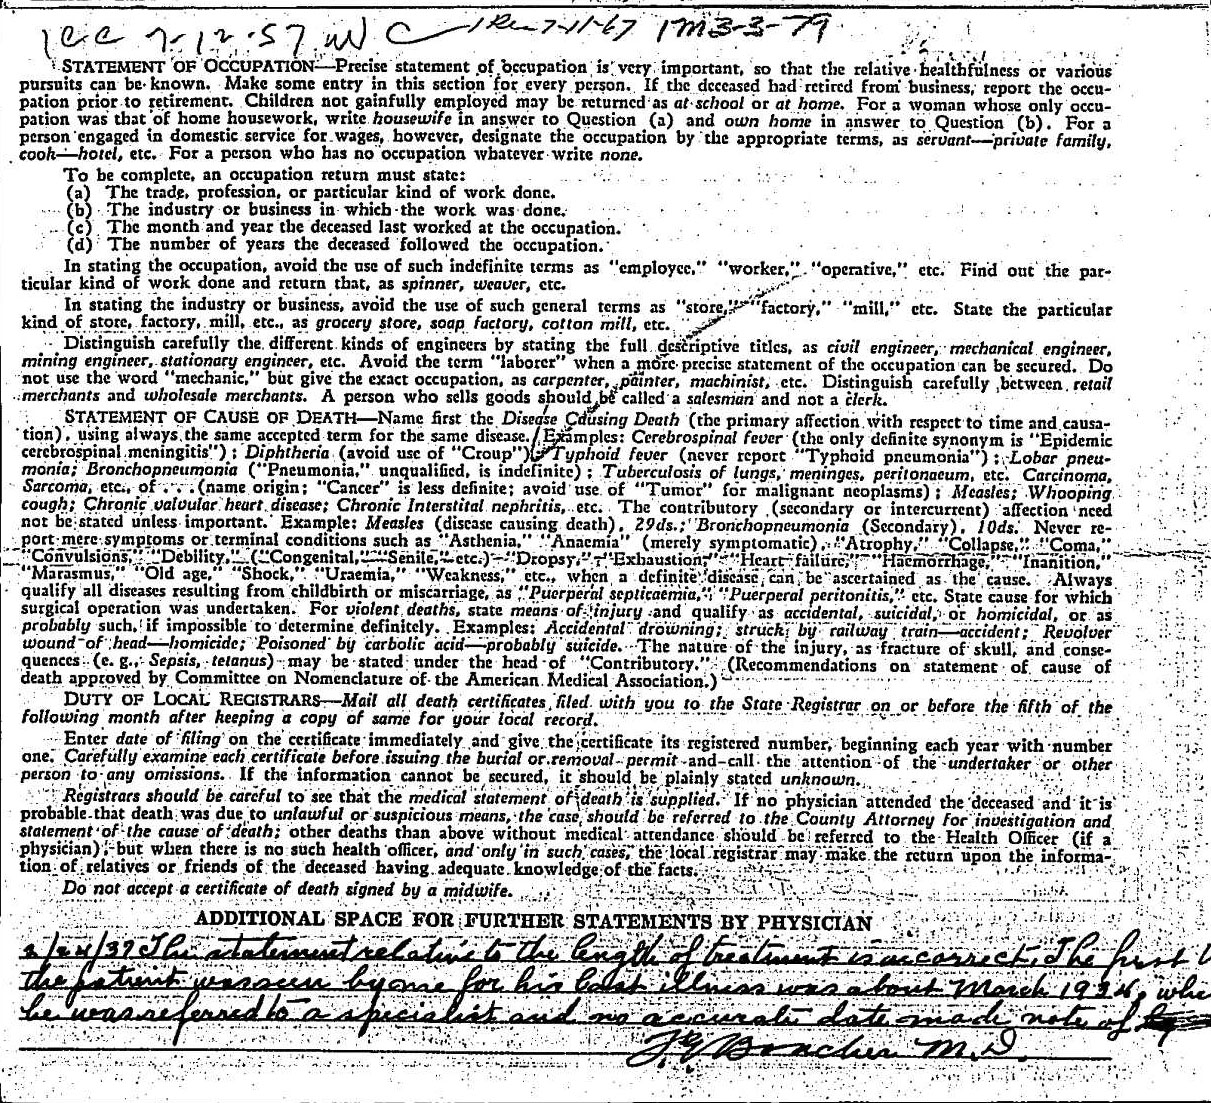 1 CC 7-12-57 W C 1 Rec 7-11-67 1M 3-3-79
STATEMENT OF OCCUPATION—Precise statement of occupation is very important, so that the relative healthfulness or various
pursuits can be known. Make some entry in this section for every person. If the deceased had retired from business, report the occu-
pation prior to retirement. Children not gainfully employed may be returned as at school or at home. For a woman whose only occu-
pation was that of home housework, write housewife in answer to Question (a) and own home in answer to Question (b). For a
person engaged in domestic service for wages, however, designate the occupation by the appropriate terms, as servant—private family,
cook—hotel, etc. For a person who has no occupation whatever write none.
To be complete, an occupation return must state:
(a) The trade, profession, or particular kind of work done.
(b) The industry or business in which the work was done.
(c) The month and year the deceased last worked at the occupation.
(d) The number of years the deceased followed the occupation.
In stating the occupation, avoid the use of such indefinite terms as "employee," "worker," "operative," etc. Find out the par-
ticular kind of work done and return that, as spinner, weaver, etc.
In stating the industry or business, avoid the use of such general terms as "store," "factory," "mill," etc. State the particular
kind of store, factory, mill, etc., as grocery store, soap factory, cotton mill, etc.
Distinguish carefully the different kinds of engineers by stating the full descriptive titles, as civil engineer, mechanical engineer,
mining engineer, stationary engineer, etc. Avoid the term "laborer" when a more precise statement of the occupation can be secured. Do
not use the word "mechanic," but give the exact occupation, as carpenter, painter, machinist, etc. Distinguish carefully between retail
merchants and wholesale merchants. A person who sells goods should be called a salesman and not a clerk.
STATEMENT OF CAUSE OF DEATH—Name first the Disease Causing Death (the primary affection with respect to time and causa-
tion), using always the same accepted term for the same disease. Examples: Cerebrospinal fever (the only definite synonym is "Epidemic
cerebrospinal meningitis"); Diphtheria (avoid use of "Croup"); Typhoid fever (never report "Typhoid pneumonia"); Lobar pneu-
monia; Bronchopneumonia ("Pneumonia," unqualified, is indefinite); Tuberculosis of lungs, meninges, peritonaeum, etc. Carcinoma,
Sarcoma, etc., of . . . (name origin; "Cancer" is less definite; avoid use of "Tumor" for malignant neoplasms); Measles; Whooping
cough; Chronic valvular heart disease; Chronic Interstital nephritis, etc. The contributory (secondary or intercurrent) affection need
not be stated unless important. Example: Measles (disease causing death), 29ds.; Bronchopneumonia (Secondary), 10ds. Never re-
port mere symptoms or terminal conditions such as "Asthenia," "Anaemia" (merely symptomatic), "Atrophy," "Collapse," "Coma,"
"Convulsions," "Debility," ("Congenital," "Senile," etc.) "Dropsy," "Exhaustion," "Heart failure," "Haemorrhage," "Inanition,"
"Marasmus," "Old age," "Shock," "Uraemia," "Weakness," etc., when a definite disease can be ascertained as the cause. Always
qualify all diseases resulting from childbirth or miscarriage, as "Puerperal septicaemia," "Puerperal peritonitis," etc. State cause for which
surgical operation was undertaken. For violent deaths, state means of injury and qualify as accidental, suicidal, or homicidal, or as
probably such, if impossible to determine definitely. Examples: Accidental drowning; struck by railway train—accident; Revolver
wound of head—homicide; Poisoned by carbolic acid—probably suicide. The nature of the injury, as fracture of skull, and conse-
quences (e. g., Sepsis, tetanus) may be stated under the head of "Contributory." (Recommendations on statement of cause of
death approved by Committee on Nomenclature of the American Medical Association.)
DUTY OF LOCAL REGISTRARS—Mail all death certificates filed with you to the State Registrar on or before the fifth of the
following month after keeping a copy of same for your local record.
Enter date of filing on the certificate immediately and give the certificate its registered number, beginning each year with number
one. Carefully examine each certificate before issuing the burial or removal permit and call the attention of the undertaker or other
person to any omissions. If the information cannot be secured, it should be plainly stated unknown.
Registrars should be careful to see that the medical statement of death is supplied. If no physician attended the deceased and it is
probable that death was due to unlawful or suspicious means, the case should be referred to the County Attorney for investigation and
statement of the cause of death; other deaths than above without medical attendance should be referred to the Health Officer (if a
physician), but when there is no such health officer, and only in such cases, the local registrar may make the return upon the informa-
tion of relatives or friends of the deceased having adequate knowledge of the facts.
Do not accept a certificate of death signed by a midwife.
ADDITIONAL SPACE FOR FURTHER STATEMENTS BY PHYSICIAN
The statement relative to the length of treatment is incorrect. The first
the patient was seen by me for his last illness was about March 1934, whe
he was referred to a specialist and no accurate date made note of
M.D.